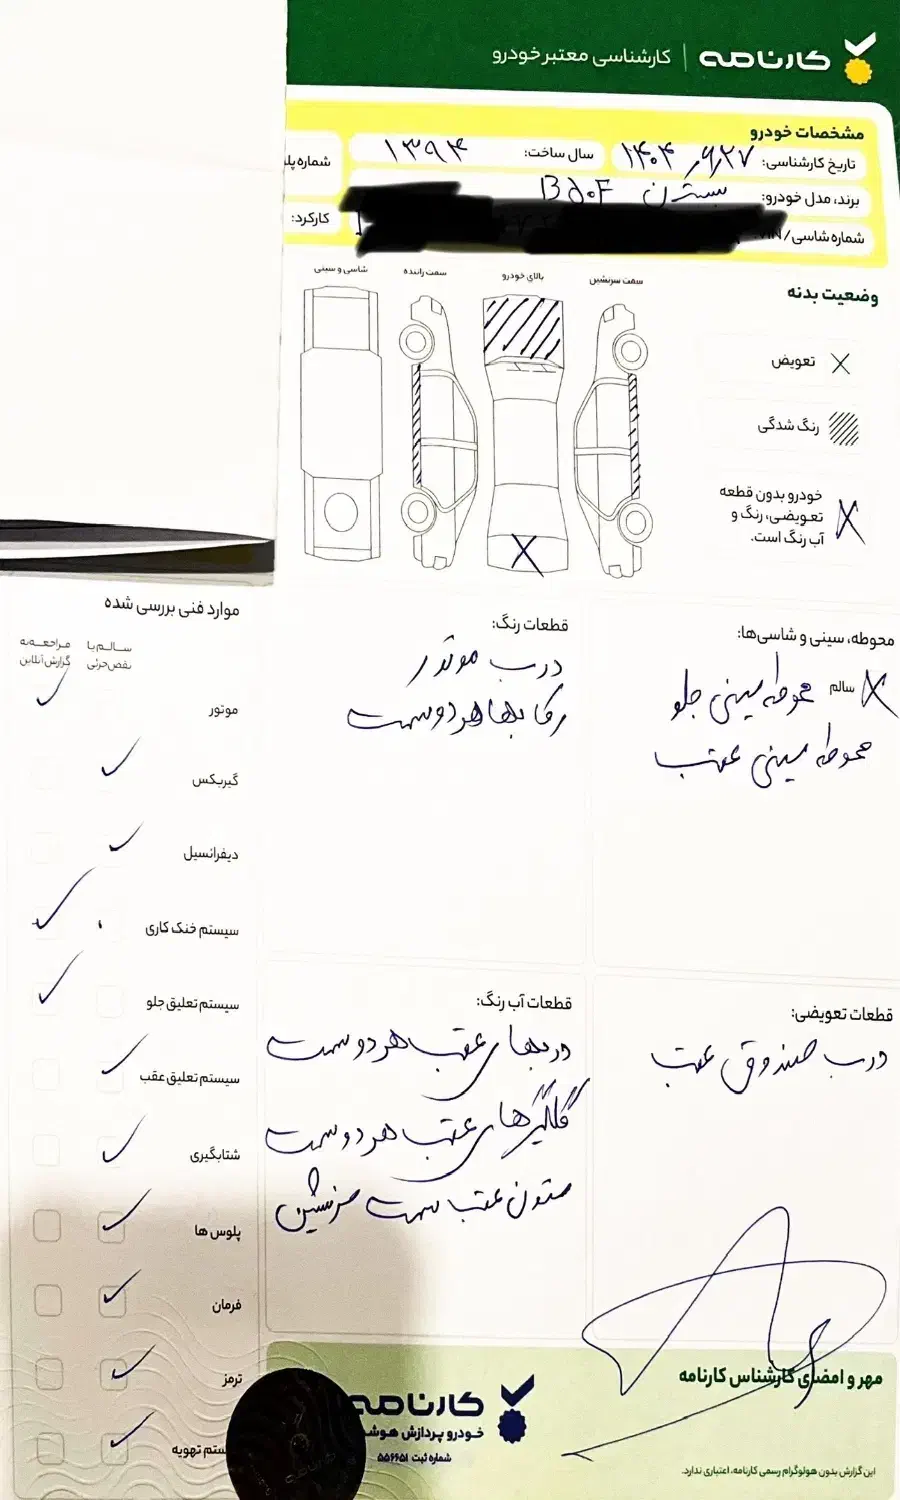 کارنامه | کارشناسی معتبر خودرو
مشخصات خودرو
تاریخ کارشناسی: ۱۴۰۴,۶,۲۷
سال ساخت: ۱۳۹۴
شماره پلا
برند، مدل خودرو: بسترن B50F
شماره شاسی/VIN:
کارکرد:
وضعیت بدنه
سمت سرنشین
بالای خودرو
سمت راننده
شاسی و سینی
تعویض
رنگ شدگی
خودرو بدون قطعه
تعویضی، رنگ و
آب رنگ است.
محوطه، سینی و شاسی‌ها:
سالم محوطه سینی جلو
محوطه سینی عقب
قطعات رنگ:
درب موتور
رکابها هر دو سمت
قطعات تعویضی:
درب صندوق عقب
قطعات آب رنگ:
دربهای عقب هر دو سمت
گلگیرهای عقب هر دو سمت
ستون عقب سمت سرنشین
موارد فنی بررسی شده
سالم یا
نقص جزئی
مراجعه به
گزارش آنلاین
موتور
گیربکس
دیفرانسیل
سیستم خنک کاری
سیستم تعلیق جلو
سیستم تعلیق عقب
شتابگیری
پلوس ها
فرمان
ترمز
ستم تهویه
مهر و امضای کارشناس کارنامه
این گزارش بدون هولوگرام رسمی کارنامه، اعتباری ندارد.
کارنامه
خودرو پردازش هوش
شماره ثبت ۵۵۶۶۵۱